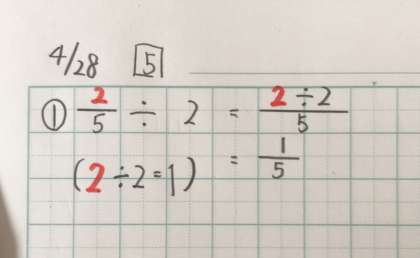 4/28 5
① 2/5 ÷ 2 = 2÷2/5
(2÷2=1) = 1/5